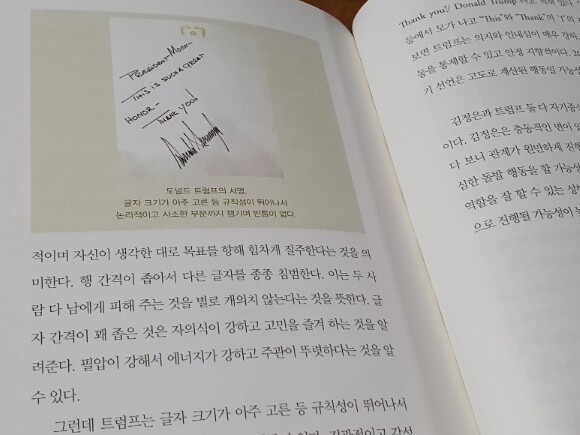 PRESIDENT MOON-
THIS IS SUCH A GREAT
HONOR-
THANK YOU!
도널드 트럼프의 서명.
글자 크기가 아주 고른 등 규칙성이 뛰어나서
논리적이고 사소한 부분까지 챙기며 빈틈이 없다.
적이며 자신이 생각한 대로 목표를 향해 힘차게 질주한다는 것을 의
미한다. 행 간격이 좁아서 다른 글자를 종종 침범한다. 이는 두 사
람 다 남에게 피해 주는 것을 별로 개의치 않는다는 것을 뜻한다. 글
자 간격이 꽤 좁은 것은 자의식이 강하고 고민을 즐겨 하는 것을 알
려준다. 필압이 강해서 에너지가 강하고 주관이 뚜렷하다는 것을 알
수 있다.
그런데 트럼프는 글자 크기가 아주 고른 등 규칙성이 뛰어나서
Thank you!/ Donald Trump
등에서 모가 나고 "This"와 "Thank"의 T의
보면 트럼프는 의지와 인내심이 매우 강하
동을 통제할 수 있고 안정 지향적이다. 20
기 선언은 고도로 계산된 행동일 가능성
김정은과 트럼프 둘 다 자기중심
이다. 김정은은 충동적인 면이 있
다 보니 관계가 원만하게 진행
심한 돌발 행동을 할 가능성
역할을 잘 할 수 있는 상
으로 진행될 가능성이 높